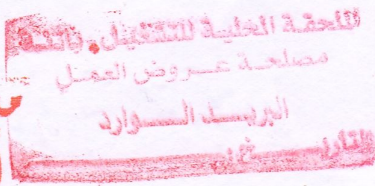 الملحقة المحلية للتشغيل
مصلحة عروض العمل
البريد الوارد